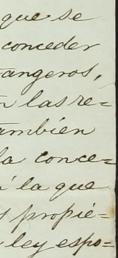 que se
conceder
angeros,
n las re-
tambien
la conce-
á la que
s propie-
ley espo-